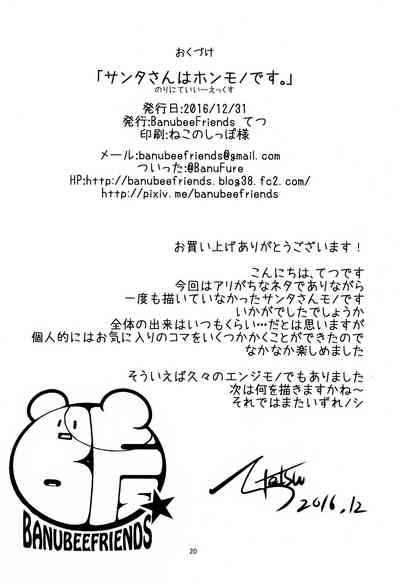 おくづけ
「サンタさんはホンモノです。」
のりにてぃいーえっくす
発行日:2016/12/31
発行:BanubeeFriends てつ
印刷:ねこのしっぽ様
メール:banubeefriends@gmail.com
ついった:@BanuFure
HP:http://banubeefriends.blog38.fc2.com/
http://pixiv.me/banubeefriends
お買い上げありがとうございます！
こんにちは、てつです
今回はアリがちなネタでありながら
一度も描いていなかったサンタさんモノです
いかがでしたでしょうか
全体の出来はいつもくらい…だとは思いますが
個人的にはお気に入りのコマをいくつかかくことができたので
なかなか楽しめました
そういえば久々のエンジモノでもありました
次は何を描きますかね～
それではまたいずれノシ
BANUBEEFRIENDS
Tetsu
2016.12
20